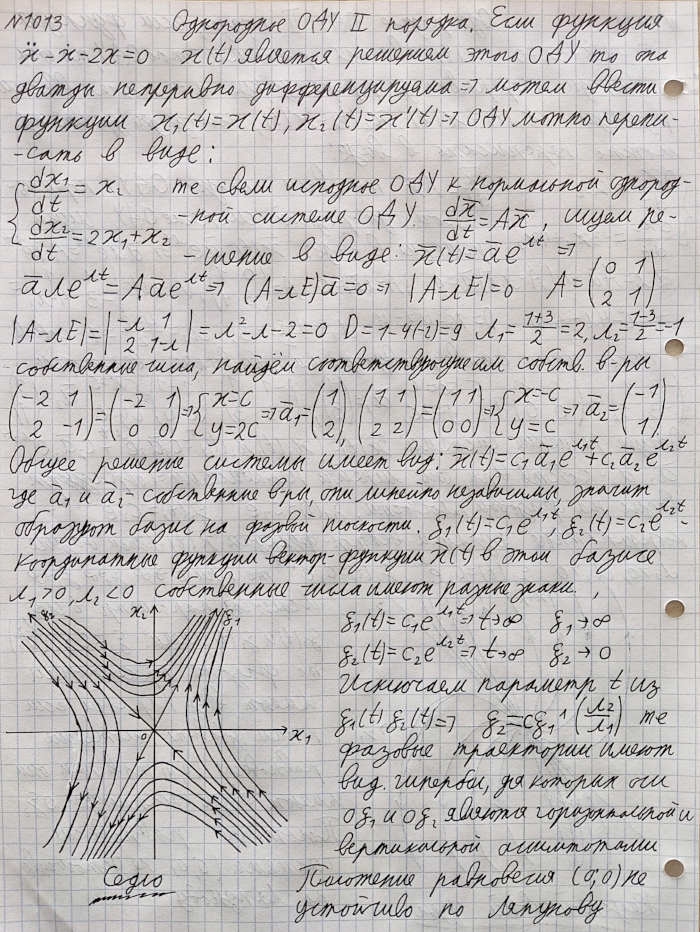 №1013 Однородное ОДУ II порядка. Если функция
ẍ-ẋ-2x=0 x(t) является решением этого ОДУ то она
дважды непрерывно дифференцируема => можем ввести
функции x₁(t)=x(t), x₂(t)=x'(t) => ОДУ можно перепи-
-сать в виде:
{dx₁/dt = x₂ те свели исходное ОДУ к нормальной однород-
dx₂/dt = 2x₁+x₂ -ной системе ОДУ dx̄/dt = Ax̄, ищем ре-
-шение в виде: x̄(t)=āe^λt =>
āλe^λt = Aāe^λt => (A-λE)ā=0 => |A-λE|=0 A=(0 1; 2 1)
|A-λE|=|-λ 1; 2 1-λ|=λ²-λ-2=0 D=1-4(-2)=9 λ₁=(1+3)/2=2, λ₂=(1-3)/2=-1
-собственные числа, найдём соответствующие им собств. в-ры
(-2 1; 2 -1)=(-2 1; 0 0)=>{x=c; y=2c => ā₁=(1; 2), (1 1; 2 2)=(1 1; 0 0)=>{x=-c; y=c => ā₂=(-1; 1)
Общее решение системы имеет вид: x̄(t)=c₁ā₁e^λ₁t+c₂ā₂e^λ₂t
где ā₁ и ā₂- собственные в-ры, они линейно независимы, значит
образуют базис на фазовой плоскости. ξ₁(t)=c₁e^λ₁t, ξ₂(t)=c₂e^λ₂t -
координатные функции вектор-функции x̄(t) в этом базисе
λ₁>0, λ₂<0 собственные числа имеют разные знаки.
ξ₂ x₂ ξ₁
0 x₁
Седло
ξ₁(t)=c₁e^λ₁t => t→∞ ξ₁→∞
ξ₂(t)=c₂e^λ₂t => t→∞ ξ₂→0
Исключаем параметр t из
ξ₁(t) ξ₂(t) => ξ₂=cξ₁^(λ₂/λ₁) те
фазовые траектории имеют
вид. гиперболы, для которых оси
Oξ₁ и Oξ₂ являются горизонтальной и
вертикальной асимптотами
Положение равновесия (0;0) не
устойчиво по Ляпунову